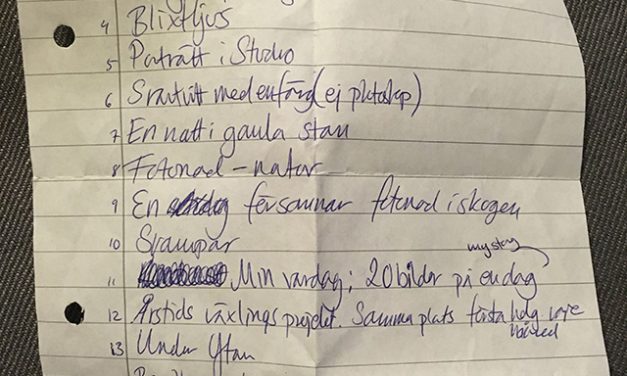 4 Blixtljus
5 Porträtt i Studio
6 Svartvitt med en färg (ej photoshop)
7 En natt i gamla stan
8 Fotonad - natur
9 En försommar fotonad i skogen
10
mystery
11 Min vardag; 20 bilder på en dag
12 Årstids växlings projekt. Samma plats första helg varje
månad
13 Under Ytan